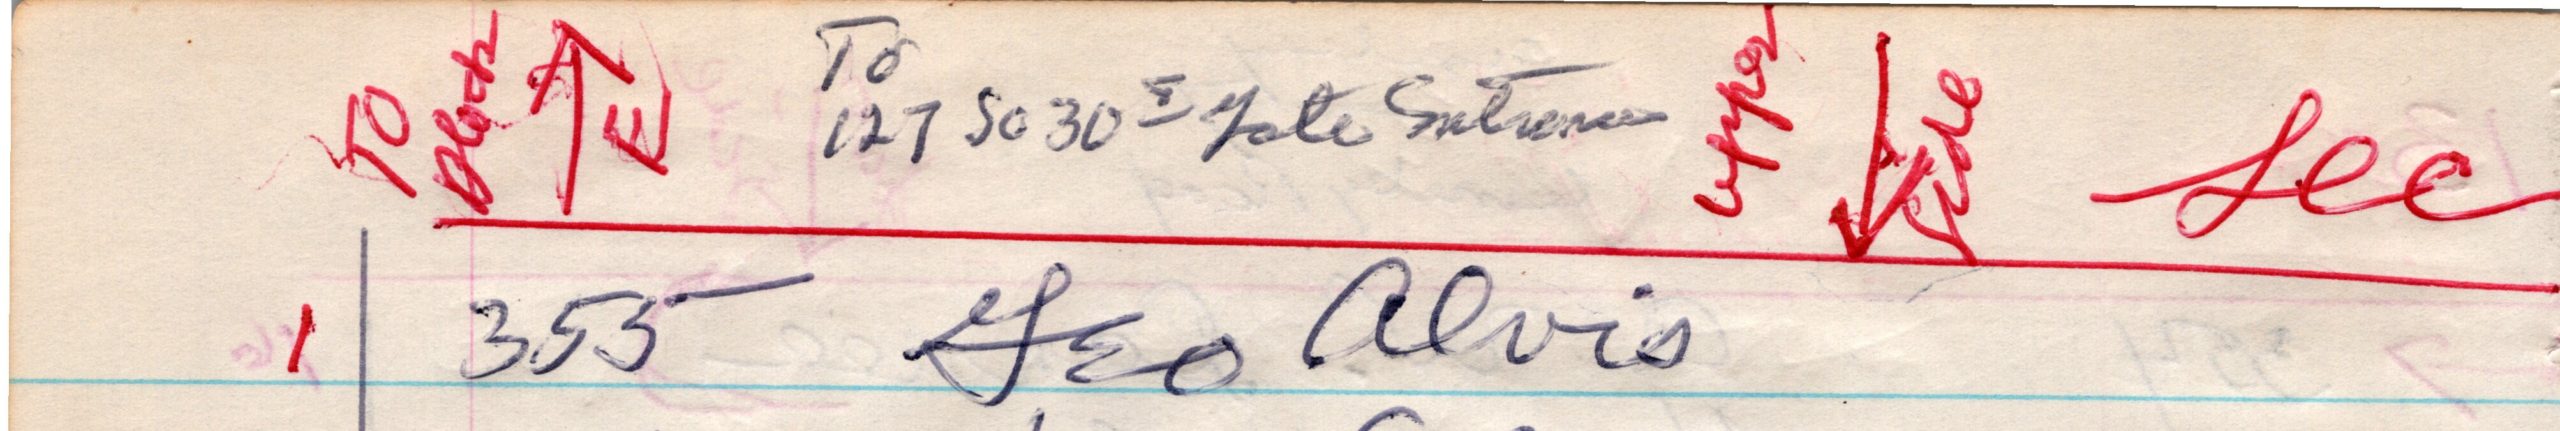 TO
E
To
127 So 30 Gate Entrance
upper
side
See
1 355 Geo Alvis